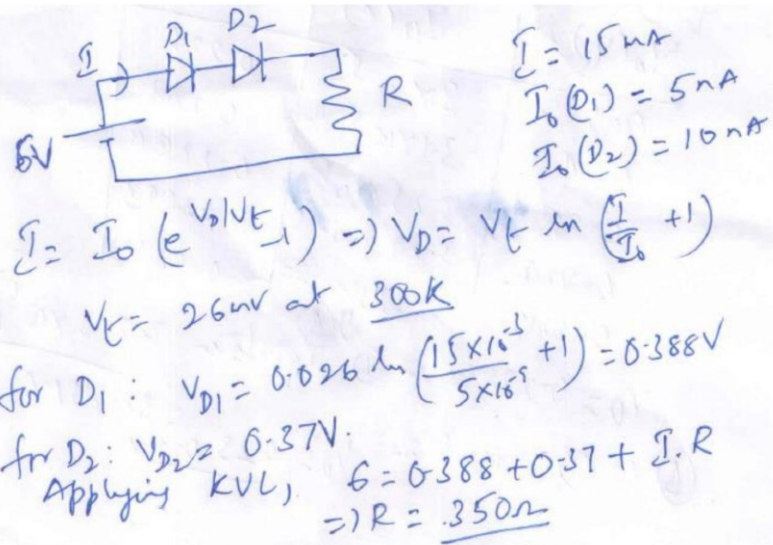 D1 D2
I
R
6V
I = 15mA
I₀(D1) = 5nA
I₀(D2) = 10nA
I = I₀ (e^(V_D/V_t) -1) => V_D = V_t ln (I/I₀ +1)
V_t = 26mV at 300K
for D₁ : V_D1 = 0.026 ln (15×10⁻³/5×10⁻⁹ +1) = 0.388V
for D₂ : V_D2 = 0.37V.
Applying KVL, 6 = 0.388 + 0.37 + I.R
=) R = 350Ω